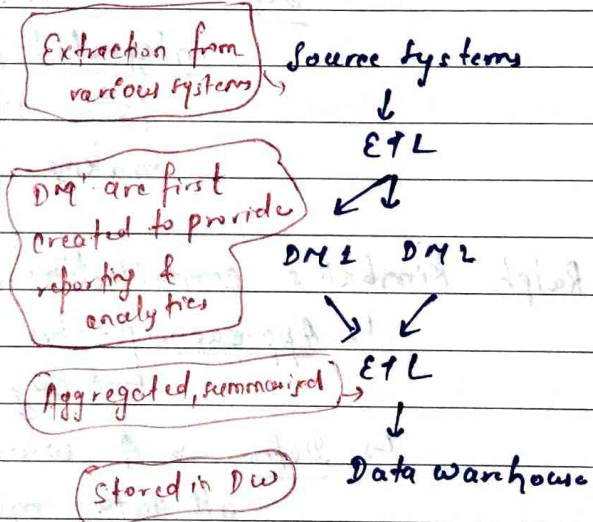 Extraction from
various systems
Source Systems
ETL
DM' are first
created to provide
reporting &
analytics
DM 1 DM 2
ETL
Aggregated, summarized
Stored in DW
Data warehouse